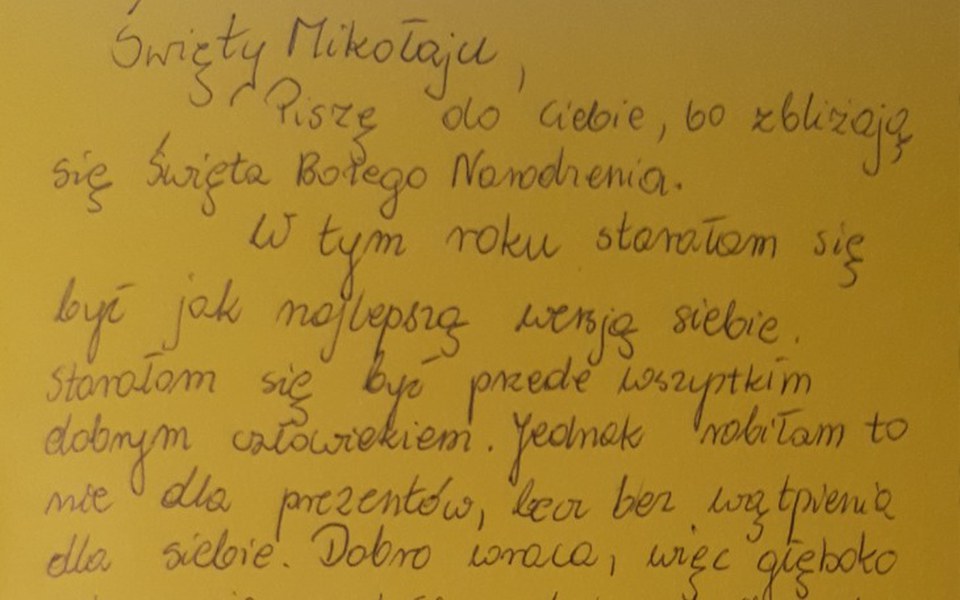 Święty Mikołaju,
Piszę do ciebie, bo zbliżają
się Święta Bożego Narodzenia.
W tym roku starałam się
być jak najlepszą wersją siebie.
Starałam się być przede wszyptkim
dobrym człowiekiem. Jednak robiłam to
nie dla prezentów, lecz bez wątpienia
dla siebie. Dobro wraca, więc głęboko